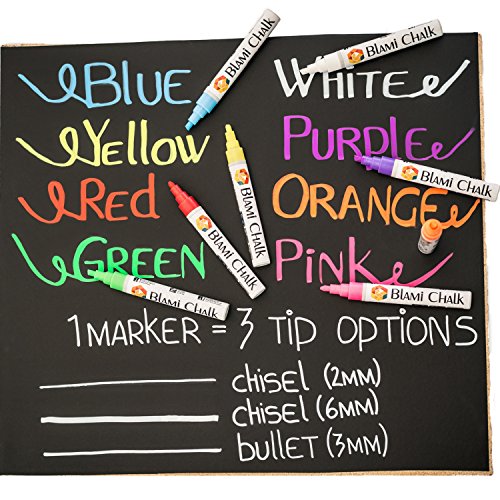 BLUE
WHITE
YELLOW
PURPLE
RED
ORANGE
GREEN
PINK
Blami Chalk
Blami Chalk
Blami Chalk
Blami Chalk
Blami Chalk
Blami Chalk
1 MARKER = 3 TIP OPTIONS
chisel (2MM)
chisel (6MM)
bullet (3MM)